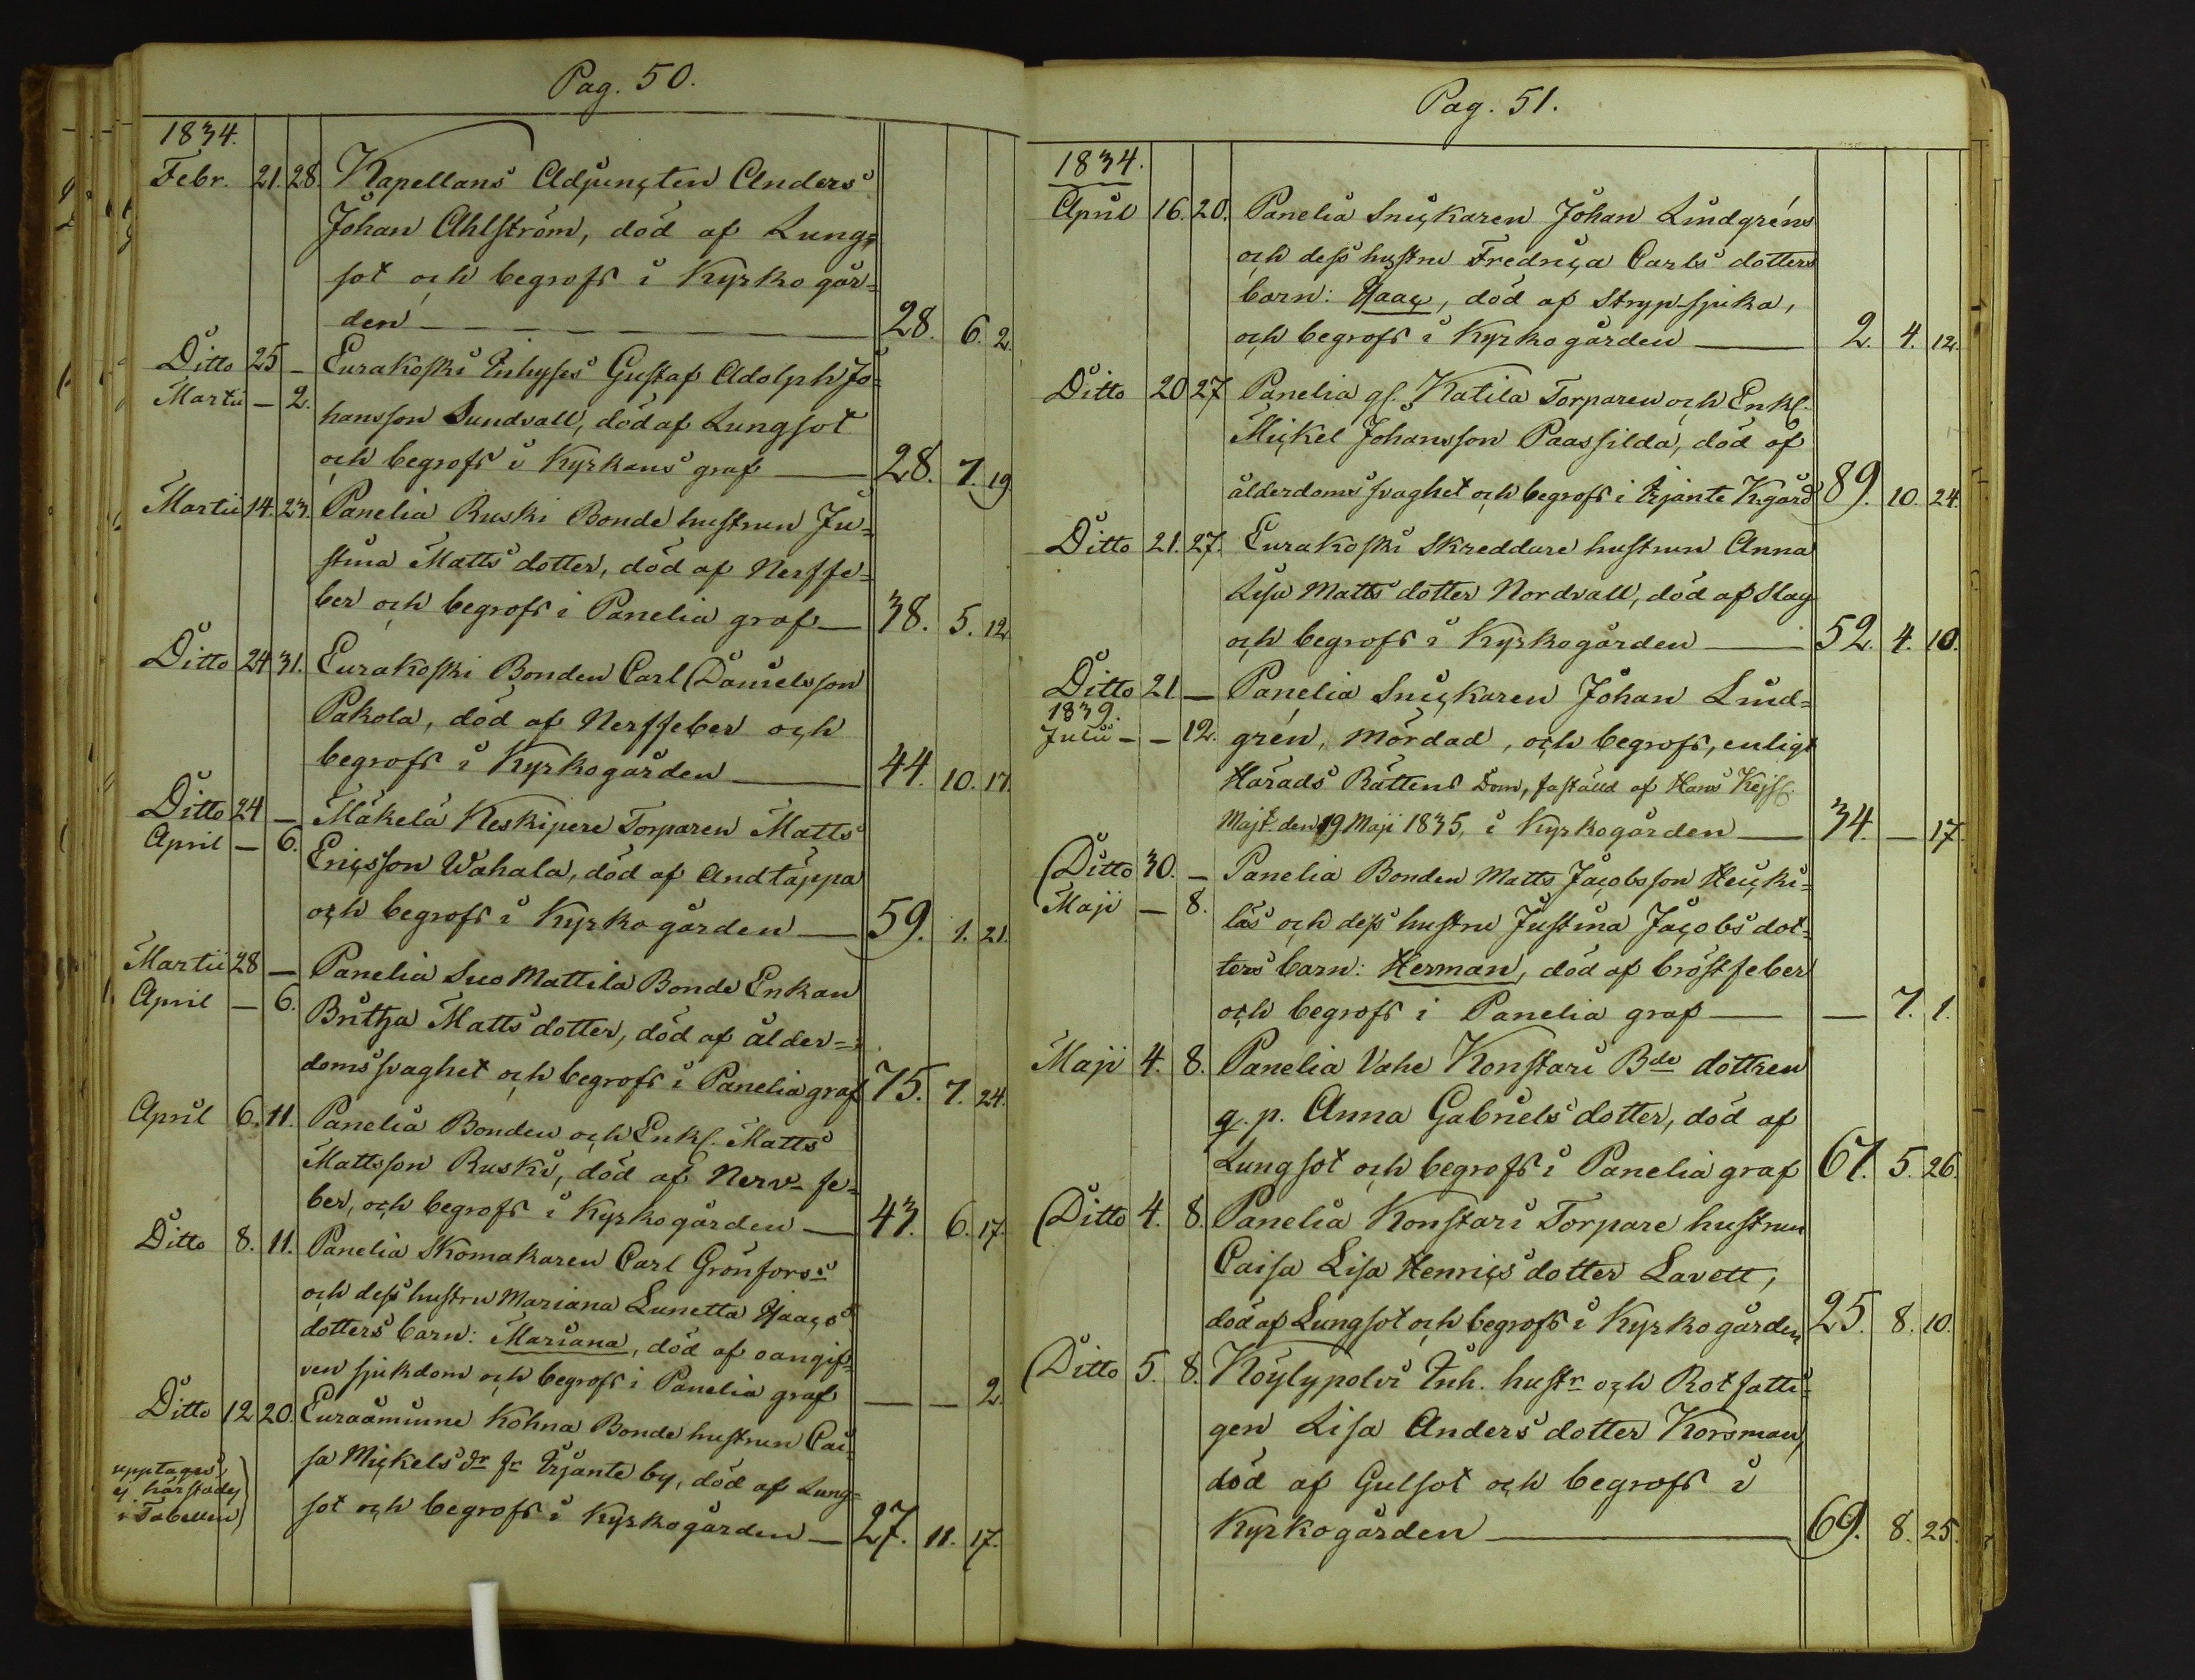 Pag. 50.
1834.
Febr. 21. 28. Kapellans Adjuncten Anders
Johan Ahlström, död af Lung=
sot och begrofs i Kyrko går=
den 28. 6. 2.
Ditto 25 – Eurakoski Inhyses Gustaf Adolph Jo=
Martii – 2. hansson Sundvall, död af Lungsot
och begrofs i Kyrkans graf 28. 7. 19.
Martii 14. 23. Panelia Ruski Bonde hustrun Ju=
stina Matts dotter, död af Nerffe=
ber och begrofs i Panelia graf 38. 5. 12.
Ditto 24 31. Eurakoski Bonden Carl Danielsson
Pakola, död af Nerffeber och
begrofs i Kyrkogården 44. 10. 17.
Ditto 24 – Mäkelä Keskipere Torparen Matts
April – 6. Ericsson Wahala, död af Andtäppa
och begrofs i Kyrko gården 59. 1. 21.
Martii 28 – Panelia Suo Mattila Bonde Enkan
April – 6. Britha Matts dotter, död af ålder=
doms svaghet och begrofs i Panelia graf 75. 7. 24.
April 6. 11. Panelia Bonden och Enkl. Matts
Mattsson Ruski, död af Nerv-fe=
ber, och begrofs i Kyrkogården 43. 6. 17.
Ditto 8. 11. Panelia Skomakaren Carl Grönfors's
och dess hustru Mariana Lunetta Haacs
dotters barn: Mariana, död af oangif=
ven sjukdom och begrofs i Panelia graf — — 2.
Ditto 12 20. Euraåminne Köhna Bonde hustrun Cai=
upptages sa Mickels dr fr Irjante by, död af Lung=
ej härstädes sot och begrofs i Kyrkogården 27. 11. 17.
i Tabellen
Pag. 51.
1834.
April 16. 20. Panelia Snickaren Johan Lindgréns
och dess hustru Fredrica Carls dotters
barn: Haac, död af Strypsjuka,
och begrofs i Kyrkogården 2. 4. 12.
Ditto 20 27 Panelia gl. Katila Torparen och Enkl.
Mickel Johansson Paassilda, död af
ålderdoms svaghet och begrofs i Irjante K.gård 89. 10. 24.
Ditto 21. 27. Eurakoski Skreddare hustrun Anna
Lisa Matts dotter Nordvall, död af Slag
och begrofs i Kyrkogården 52. 4. 10.
Ditto 21 – Panelia Snickaren Johan Lind=
1839.
Julii – – 12. grén, mördad, och begrofs, enligt
Härads Rättens Dom, faställd af Hans Kejsl.
Majt. den 19 Maji 1835, i Kyrkogården 34. — 17.
Ditto 30. – Panelia Bonden Matts Jacobsson Heicki=
Maji – 8. läs och dess hustru Justina Jacobs dot=
ters barn: Herman, död af bröstfeber
och begrofs i Panelia graf — 7. 1.
Maji 4. 8. Panelia Vahe Konstari Bde dottren
q. p. Anna Gabriels dotter, död af
Lungsot och begrofs i Panelia graf 67. 5. 26.
Ditto 4. 8. Panelia Konstari Torpare hustrun
Caisa Lisa Henrics dotter Lavett,
död af Lungsot och begrofs i Kyrko gården 25. 8. 10.
Ditto 5. 8. Köylypolvi Inh. hustr och Rotfatti=
gen Lisa Anders dotter Korsman,
död af Gulsot och begrofs i
Kyrkogården 69. 8. 25.